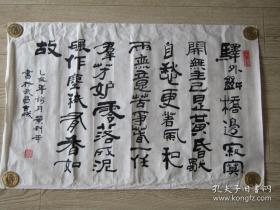 驛外斷橋邊寂寞
開無主已是黃昏獨
自愁更著風和
雨無意苦爭春一任
羣芳妒零落成泥
碾作塵祇有香如
故
孔夫子旧书网